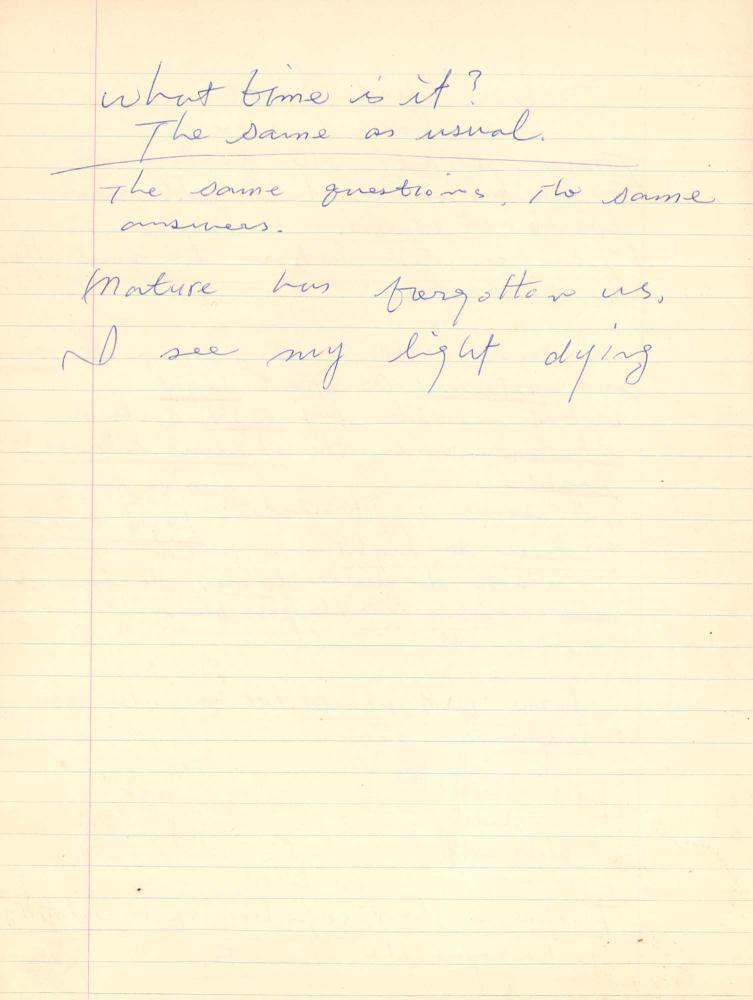 What time is it?
The same as usual.
The same questions, the same
answers.
Nature has forgotten us.
I see my light dying